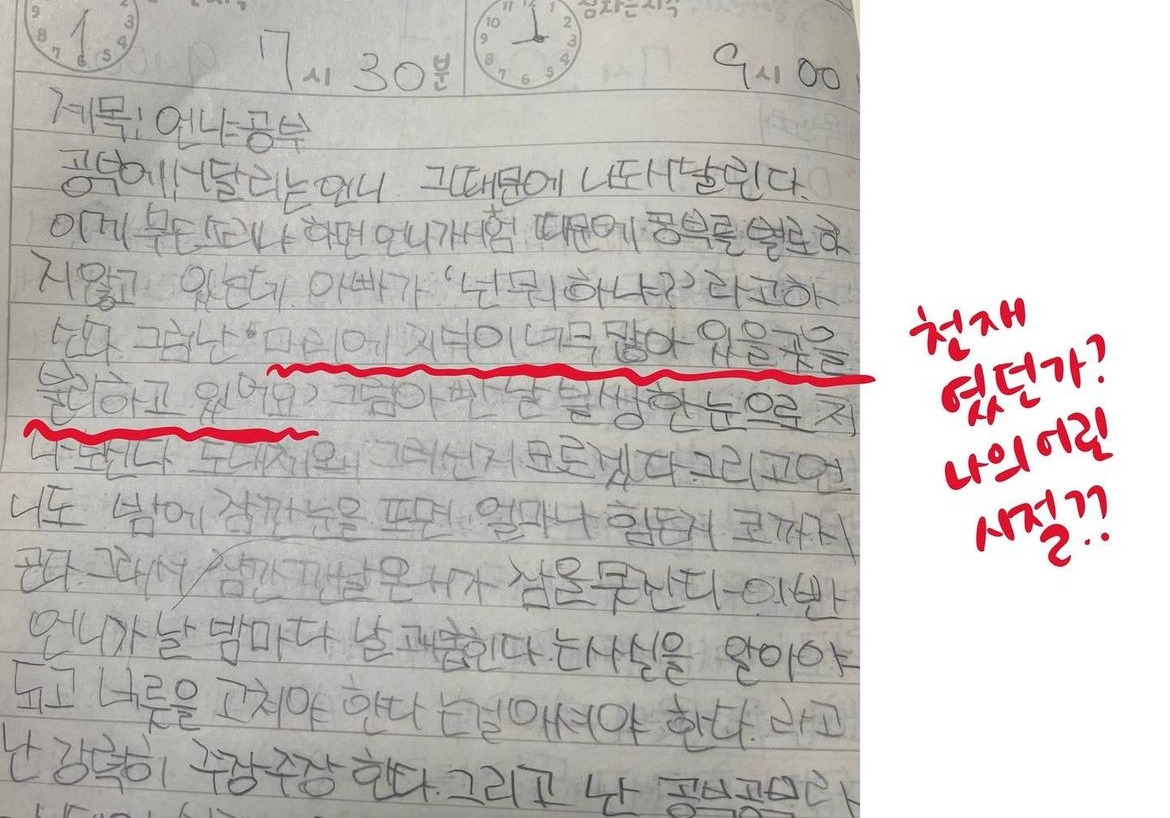 잠자는시각
7시 30분
9시 00
제목: 언니공부
공부에 시달리는 언니. 그때문에 나또 시달린다.
이게 무는소리나 하면 언니가 시험 때문에 공부를 별로하
지않고 있는데 아빠가 '넌 뭐하냐?' 라고하
신다. 그럼 난 '머리에 지식이 너무 많아 있을곳을
분리하고 있어요' 그럼 아빤 날 불쌍한 눈으로 지
나 보신다 도대체 왜 그러신지 모르겠다. 그리고 언
니도 밤에 잠깐 눈을 뜨면 얼마나 힘든지 코까지
곤다. 그래서 잠깐 깬 날 온서가 잠을 못잔다.
언니가 날 밤마다 날 괴롭힌다.는 사실을 알아야
되고 버릇을 고쳐야 한다 는걸 아셔야 한다. 라고
난 강력히 주장주장 한다. 그리고 난 공부공부라
천재
였던가?
나의 어린
시절??